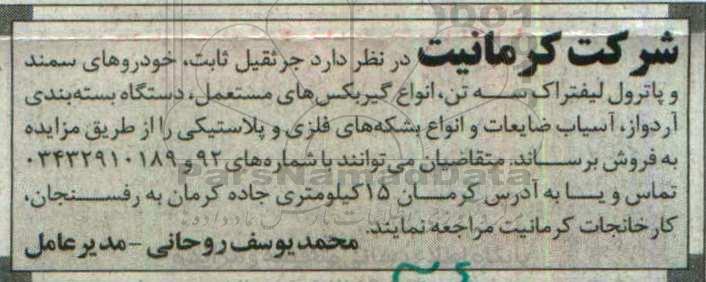 شرکت کرمانیت در نظر دارد جرثقیل ثابت، خودروهای سمند
و پاترول لیفتراک ســه تن، انواع گیربکس‌های مستعمل، دستگاه بسته‌بندی
آردواز، آسیاب ضایعات و انواع بشکه‌های فلزی و پلاستیکی را از طریق مزایده
به فروش برســاند. متقاضیان می‌توانند با شماره‌های ۹۲ و ۰۳۴۳۲۹۱۰۱۸۹
تماس و یــا به آدرس کرمــان ۱۵ کیلومتری جاده کرمان به رفســنجان،
کارخانجات کرمانیت مراجعه نمایند.
محمدیوسف روحانی - مدیرعامل
ParsNamadData